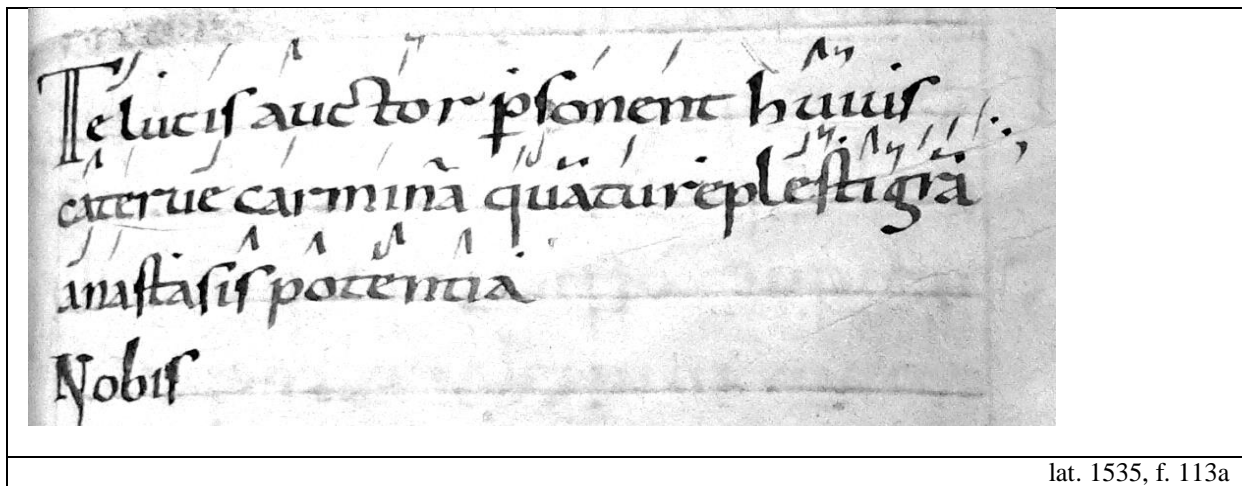 Te lucis auctor ꝑsonent huius
caterue carmina quā tu replesti grā
anastasis potentia
Nobis
lat. 1535, f. 113a